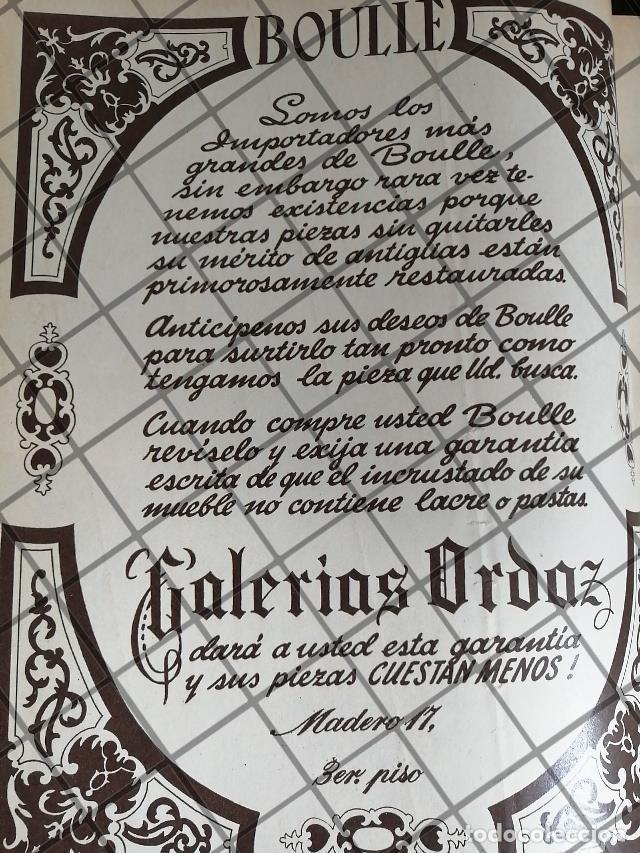 BOULLE
Somos los
Importadores más
grandes de Boulle,
sin embargo rara vez te-
nemos existencias porque
nuestras piezas sin quitarles
su mérito de antigüas están
primorosamente restauradas.
Anticípenos sus deseos de Boulle
para surtirlo tan pronto como
tengamos la pieza que Ud. busca.
Cuando compre usted Boulle
revíselo y exija una garantía
escrita de que el incrustado de su
mueble no contiene lacre o pastas.
Galerias Ordaz
dará a usted esta garantía
y sus piezas CUESTAN MENOS!
Madero 17,
3er. piso
todocoleccion